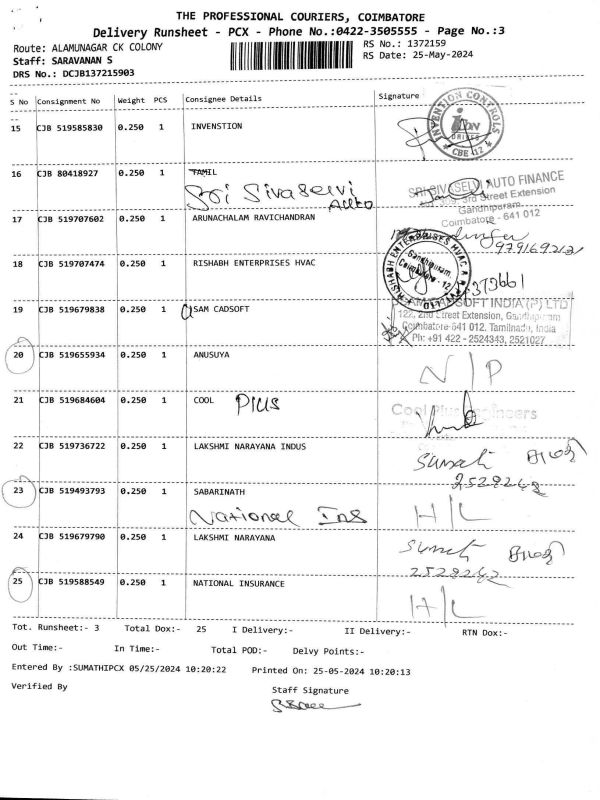 THE PROFESSIONAL COURIERS, COIMBATORE
Delivery Runsheet - PCX - Phone No.:0422-3505555 - Page No.:3
Route: ALAMUNAGAR CK COLONY RS No.: 1372159
Staff: SARAVANAN S RS Date: 25-May-2024
DRS No.: DCJB137215903
S No Consignment No Weight PCS Consignee Details Signature
15 CJB 519585830 0.250 1 INVENSTION
INVENTION CONTROLS
iCON
DRIVES
CBE 12
16 CJB 80418927 0.250 1 TAMIL
Sri Sivaselvi Auto
SRI SIVASELVI AUTO FINANCE
3rd Street Extension
Gandhipuram
Coimbatore - 641 012
17 CJB 519707602 0.250 1 ARUNACHALAM RAVICHANDRAN
18 CJB 519707474 0.250 1 RISHABH ENTERPRISES HVAC
RISHABH ENTERPRISES HVAC
Gandhipuram,
Coimbatore - 12
373661
19 CJB 519679838 0.250 1 SAM CADSOFT
SOFT INDIA (P) LTD
122, 2nd Street Extension, Gandhipuram
Coimbatore-641 012, Tamilnadu, India
Ph: +91 422 - 2524343, 2521027
20 CJB 519655934 0.250 1 ANUSUYA N/P
21 CJB 519684604 0.250 1 COOL Plus
Cool Plus Engineers
22 CJB 519736722 0.250 1 LAKSHMI NARAYANA INDUS Sumati
2529242
23 CJB 519493793 0.250 1 SABARINATH
National Ins H/L
24 CJB 519679790 0.250 1 LAKSHMI NARAYANA Sumati
2529242
25 CJB 519588549 0.250 1 NATIONAL INSURANCE H/L
Tot. Runsheet:- 3 Total Dox:- 25 I Delivery:- II Delivery:- RTN Dox:-
Out Time:- In Time:- Total POD:- Delvy Points:-
Entered By :SUMATHIPCX 05/25/2024 10:20:22 Printed On: 25-05-2024 10:20:13
Verified By Staff Signature